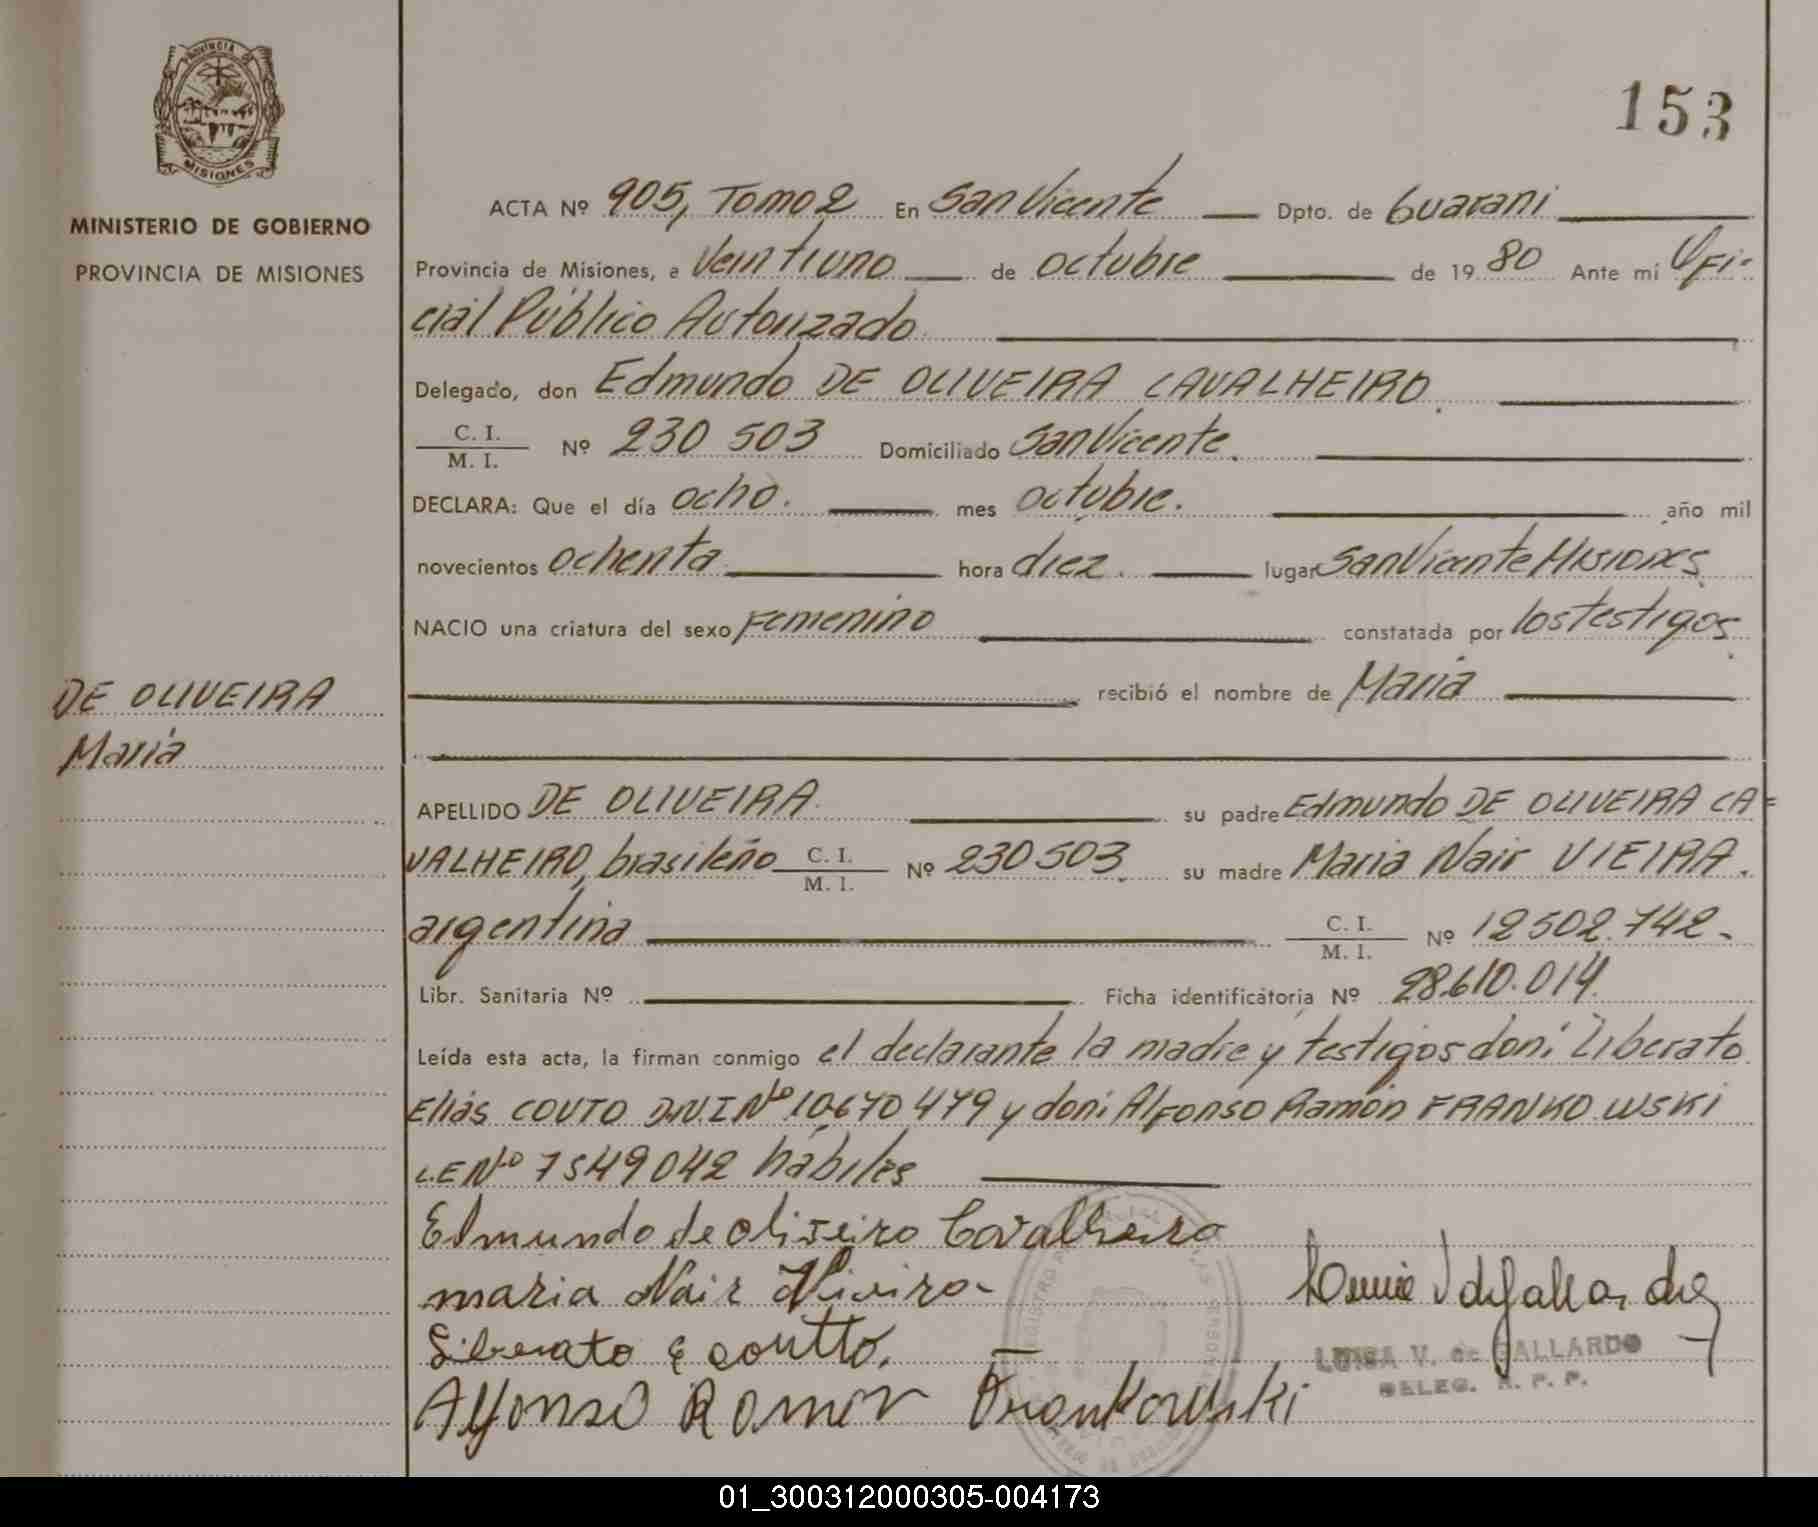 PROVINCIA DE
MISIONES
MINISTERIO DE GOBIERNO
PROVINCIA DE MISIONES
153
ACTA Nº 905, Tomo 2 En San Vicente Dpto. de Guarani
Provincia de Misiones, a Veintiuno de octubre de 1980 Ante mí Ofi-
cial Público Autorizado
Delegado, don Edmundo DE OLIVEIRA CAVALHEIRO.
C. I.
M. I. Nº 230 503 Domiciliado San Vicente.
DECLARA: Que el día ocho. mes octubre. año mil
novecientos ochenta hora diez. lugar San Vicente Misiones.
NACIO una criatura del sexo Femenino constatada por los testigos.
recibió el nombre de Maria
DE OLIVEIRA
Maria
APELLIDO DE OLIVEIRA. su padre Edmundo DE OLIVEIRA CA=
VALHEIRO, brasileño C. I. M. I. Nº 230 503. su madre Maria Nair VIEIRA.
argentina C. I. M. I. Nº 12502.742-
Libr. Sanitaria Nº Ficha identificatoria Nº 28.610.014.
Leída esta acta, la firman conmigo el declarante la madre y testigos don: Liberato
Elias COUTO D.N.I Nº 10.670 479 y don: Alfonso Ramón FRANKOWSKI
L.E Nº 7549042 hábiles
Edmundo de oliveira Cavalheiro
maria Nair Vieira-
Liberato E coutto.
Alfonso Ramon Frankowski
LUISA V. de GALLARDO
DELEG. R. P. P.
01_300312000305-004173